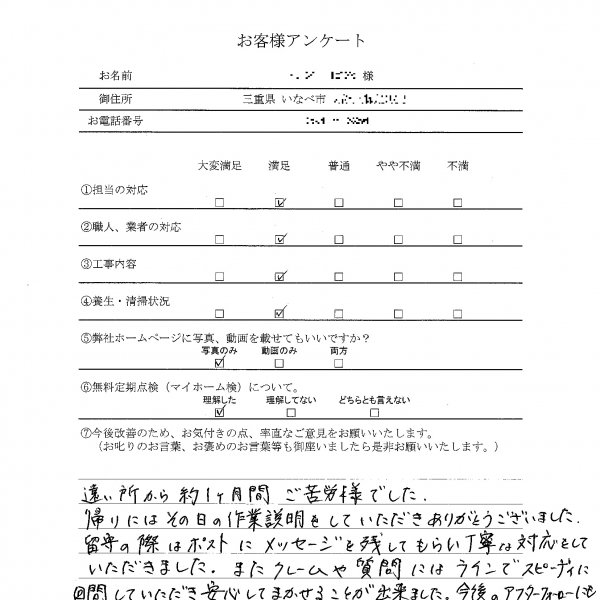 お客様アンケート
お名前 様
御住所 三重県 いなべ市
お電話番号
大変満足 満足 普通 やや不満 不満
①担当の対応 □ ☑ □ □ □
②職人、業者の対応 □ ☑ □ □ □
③工事内容 □ ☑ □ □ □
④養生・清掃状況 □ ☑ □ □ □
⑤弊社ホームページに写真、動画を載せてもいいですか？
写真のみ 動画のみ 両方
☑ □ □
⑥無料定期点検（マイホーム検）について。
理解した 理解してない どちらとも言えない
☑ □ □
⑦今後改善のため、お気付きの点、率直なご意見をお願いいたします。
（お叱りのお言葉、お褒めのお言葉等も御座いましたら是非お願いいたします。）
遠い所から約1ヶ月間 ご苦労様でした.
帰りにはその日の作業説明をしていただきありがとうございました.
留守の際はポストにメッセージを残してもらい丁寧な対応をして
いただきました. またクレームや質問にはラインでスピーディに
回答していただき安心してまかせることが出来ました. 今後のアフターフォローにも